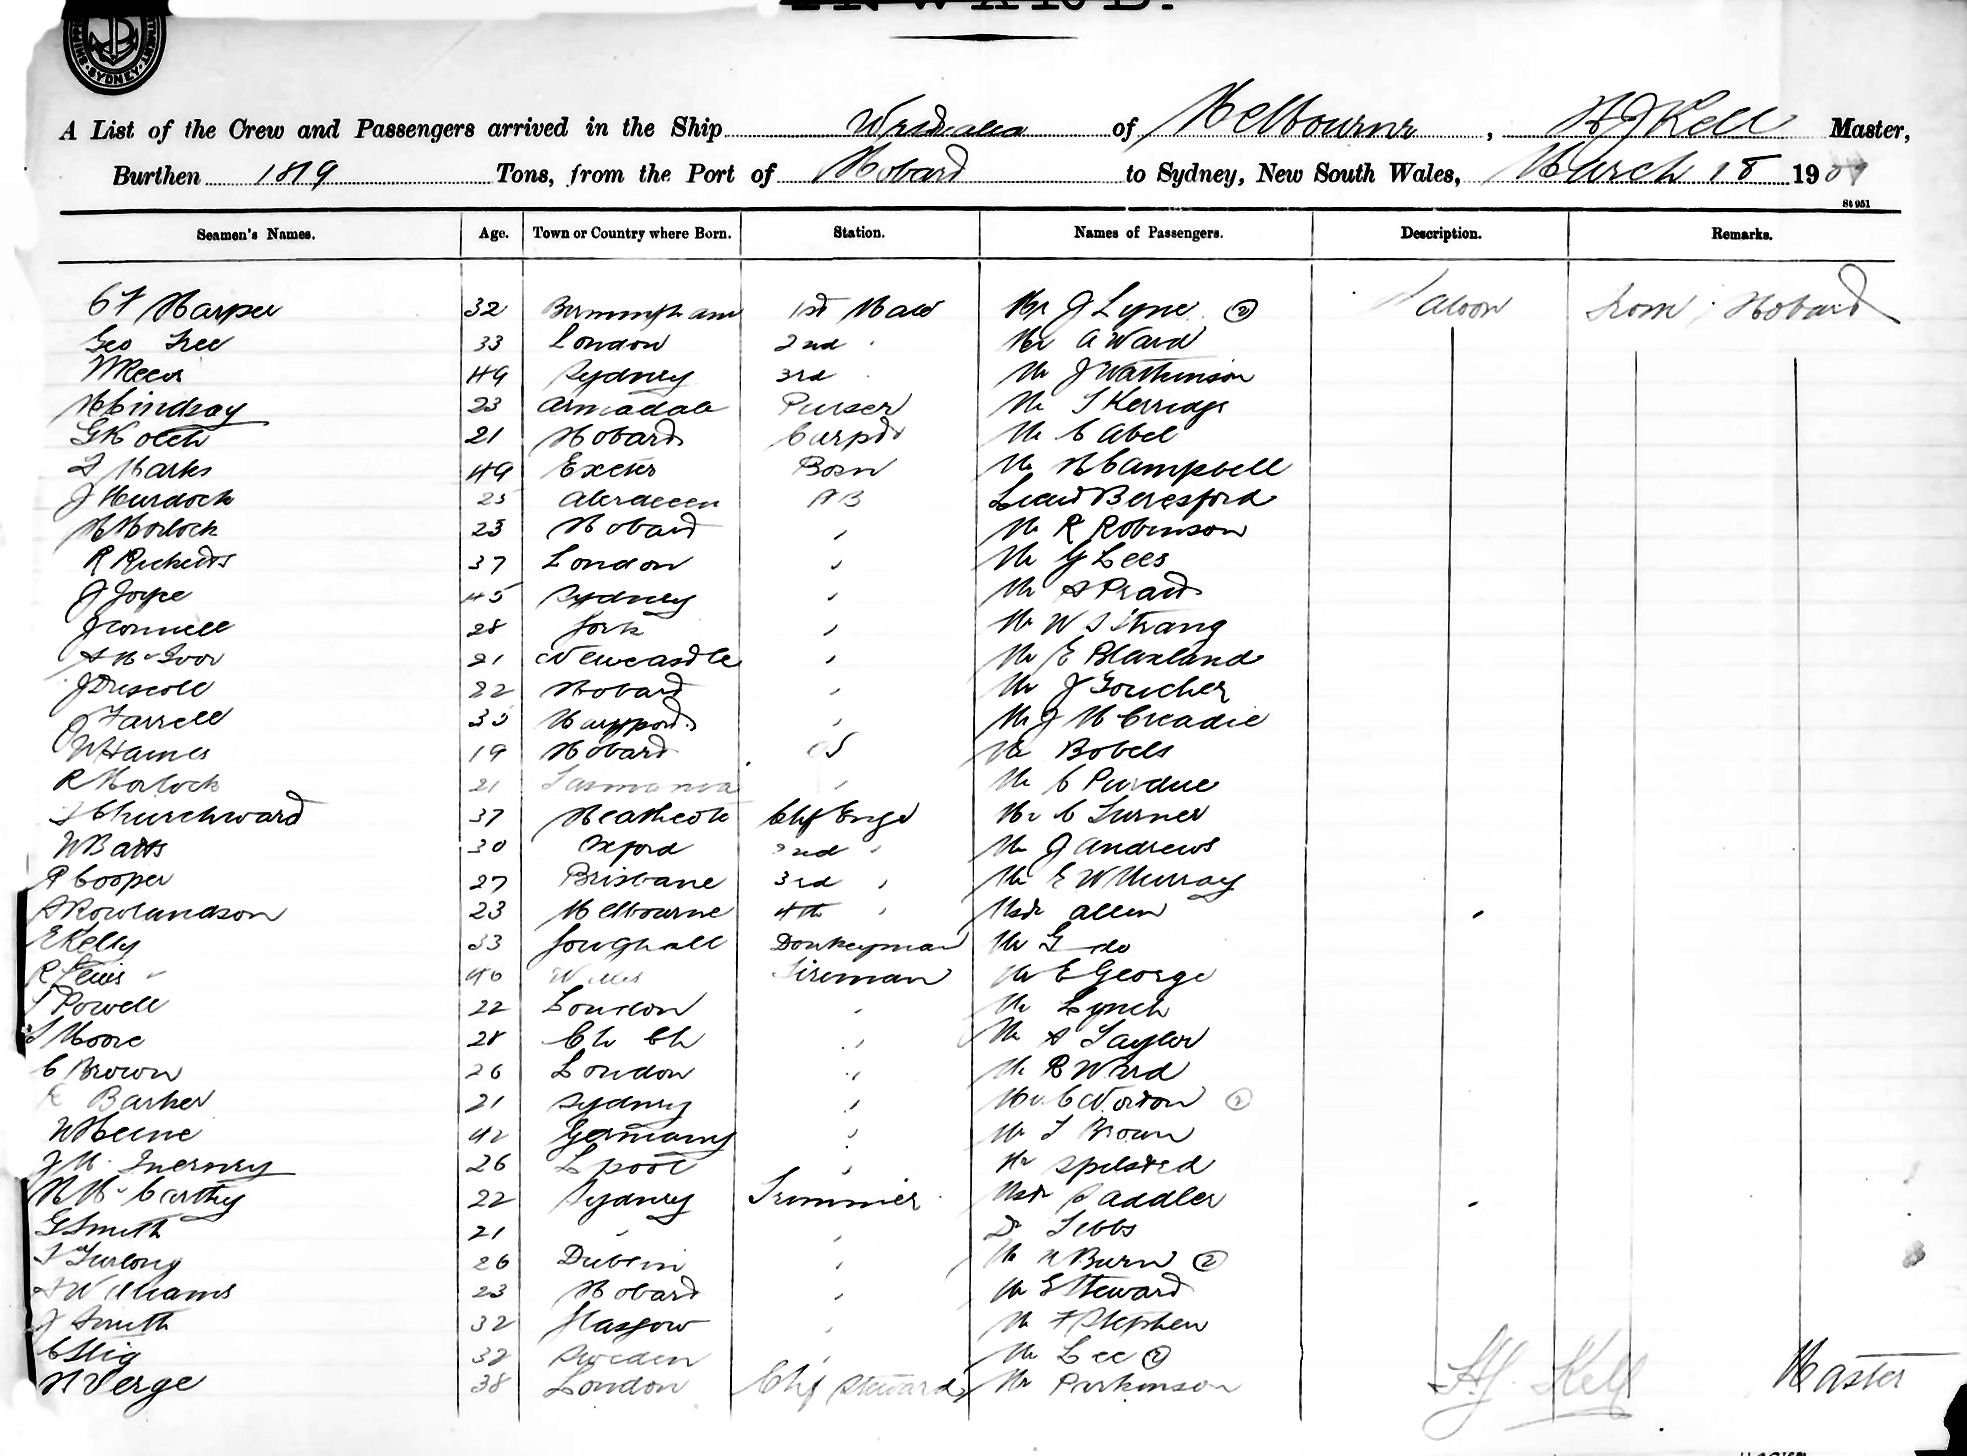 SYDNEY
INWARD.
A List of the Crew and Passengers arrived in the Ship of Melbourne, H J Kell Master,
Burthen 1819 Tons, from the Port of Hobart to Sydney, New South Wales, March 18 190
St 951
Seamen's Names. Age. Town or Country where Born. Station. Names of Passengers. Description. Remarks.
Harper 32 Birmingham 1st Mate Mr J Lyne (2) Saloon from Hobart
Geo Tree 33 London 2nd " Mr A Ward
49 Sydney 3rd " Mr J Watkinson
H Lindsay 23 Armadale Purser Mr Kerridge
21 Hobart Carptr Mr C Abel
Marks 49 Exeter Bosn Mr Campbell
J Murdock 25 Aberdeen AB Lieut Beresford
Morlock 23 Hobart " Mr R Robinson
R Ricketts 37 London " Mr G Lees
J Joyce 45 Sydney " Mr Pratt
J Connell 28 " Mr W Strang
21 Newcastle " Mr E Blaxland
J Driscoll 22 Hobart " Mr J Goucher
Farrell " Mr J McCreadie
W Hames 19 Hobart OS
R Morlock 21 Tasmania " Mr C Purdue
Churchward 37 Heathcote Chf Engr Mr C Turner
W Batts 30 Oxford 2nd " Mr J Andrews
R Cooper 27 Brisbane 3rd " Mr E W Murray
Rowlandson 23 Melbourne 4th " Mstr Allen
E Kelly 33 Youghall Donkeyman Mr G do
R Lewis 40 Fireman Mr E George
Powell 22 London " Mr Lynch
Moore 28 Ch Ch " Mr Taylor
C Brown 26 London " Mr R Ward
Barker 21 Sydney " Mr C Norton (2)
W Heine 42 Germany " Mr Brown
J McInerney 26 L'pool "
McCarthy 22 Sydney Trimmer Mstr Saddler
G Smith 21 " " Dr Tibbs
Furlong 26 Dublin " Mr Burn (2)
Williams 23 Hobart " Mr Steward
J Smith 32 Glasgow " Mr F Stephen
32 Sweden " Mr Lee (2)
Verge 38 London Chf Steward Mr Parkinson
H.J. Kell Master